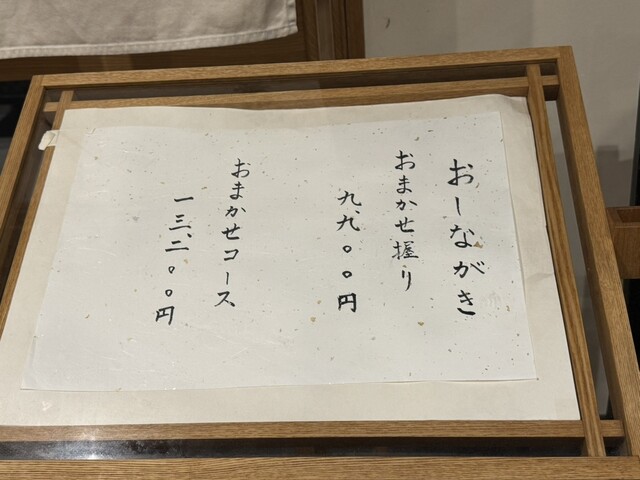 おしながき
おまかせ握り
九、九〇〇円
おまかせコース
一三、二〇〇円